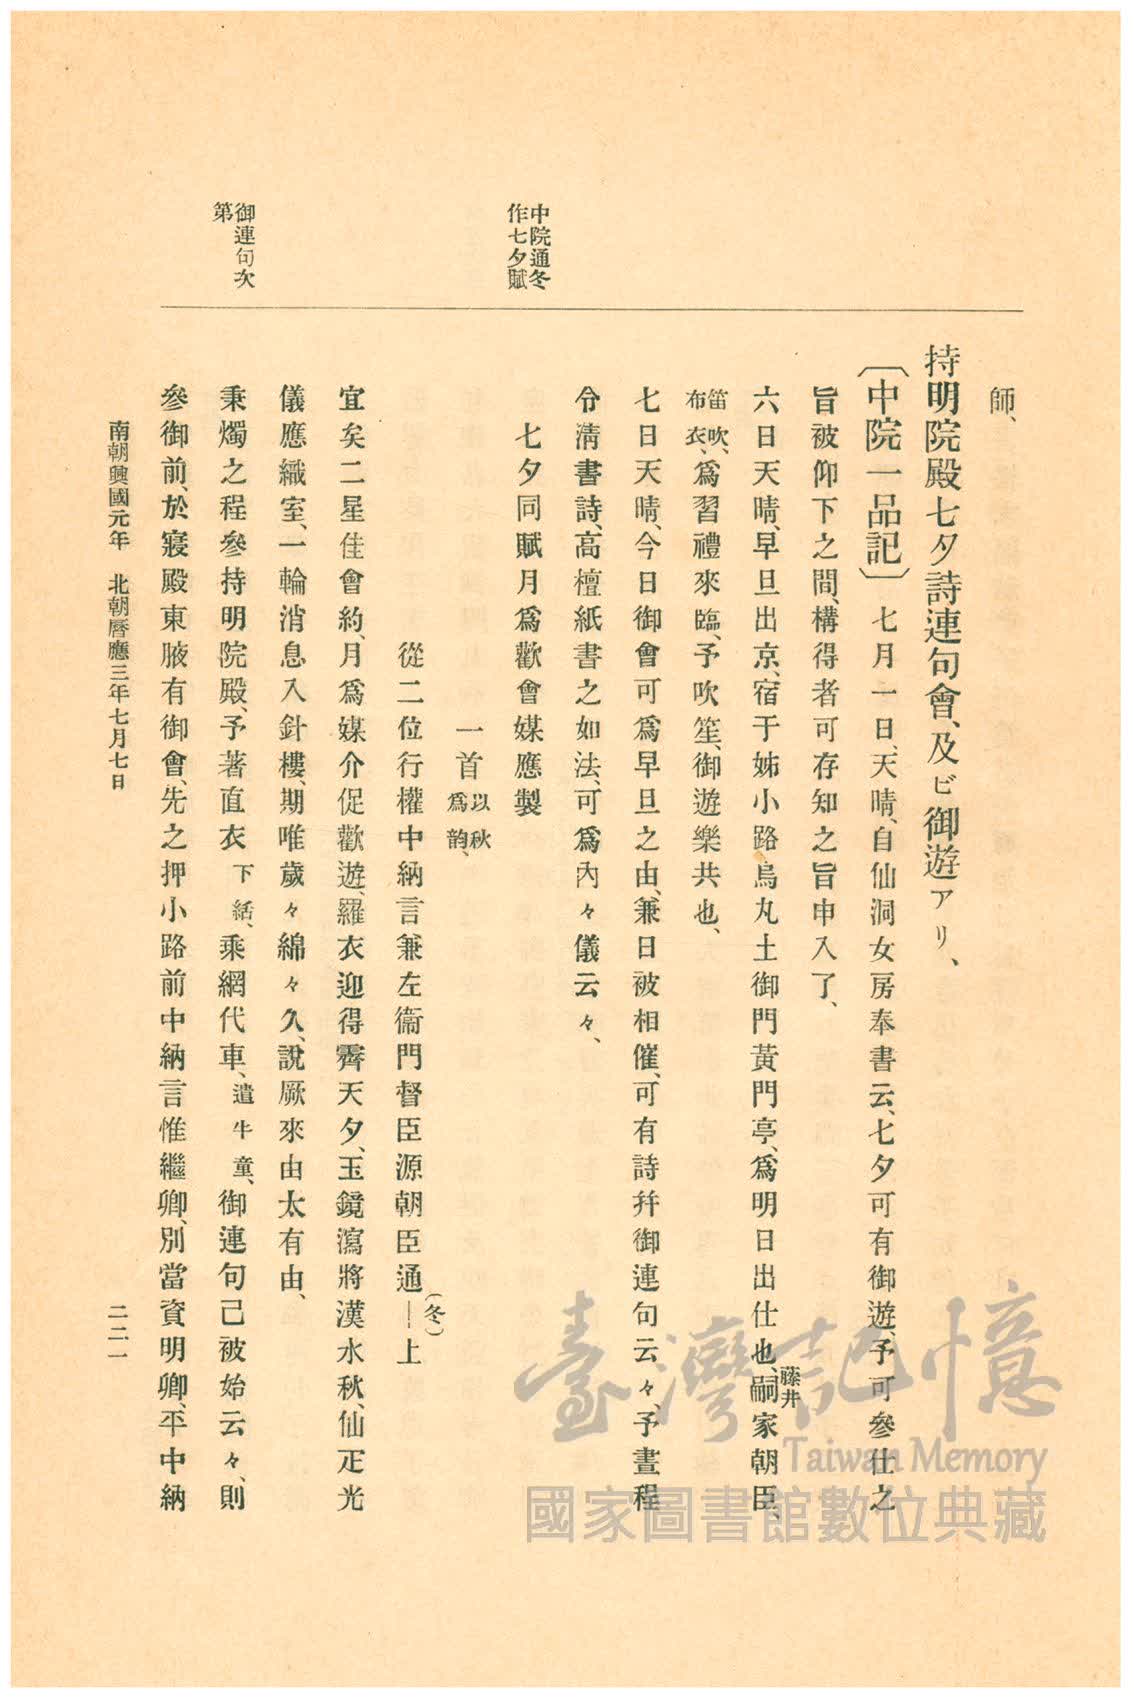 中院通冬
作七夕賦
御連句次
第
師、
持明院殿七夕詩連句會、及ビ御遊アリ、
〔中院一品記〕七月一日、天晴、自仙洞女房奉書云、七夕可有御遊、予可參仕之
旨被仰下之間、構得者可存知之旨申入了、
六日天晴、早旦出京、宿于姊小路烏丸土御門黃門亭、爲明日出仕也、嗣家朝臣、
藤井
笛吹、
布衣、爲習禮來臨、予吹笙、御遊樂共也、
七日天晴、今日御會可爲早旦之由、兼日被相催、可有詩幷御連句云々、予晝程
令淸書詩、高檀紙書之如法、可爲內々儀云々、
七夕同賦月爲歡會媒應製
一首以秋
爲韵、
從二位行權中納言兼左衞門督臣源朝臣通—上
(冬)
宜矣二星佳會約、月爲媒介促歡遊、羅衣迎得霽天夕、玉鏡瀉將漢水秋、仙疋光
儀應織室、一輪消息入針樓、期唯歲々綿々久、說厥來由太有由、
秉燭之程參持明院殿、予著直衣下括、乘網代車、遣牛童、御連句已被始云々、則
參御前、於寢殿東腋有御會、先之押小路前中納言惟繼卿、別當資明卿、平中納
南朝興國元年 北朝曆應三年七月七日
二二一
臺灣記憶
Taiwan Memory
國家圖書館數位典藏